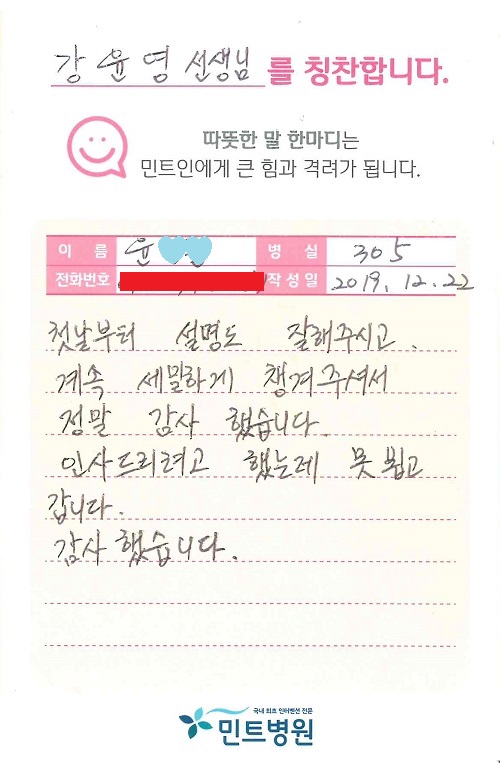 강윤영 선생님 를 칭찬합니다.
따뜻한 말 한마디는
민트인에게 큰 힘과 격려가 됩니다.
이 름 윤 병 실 305
전화번호 작성일 2019. 12. 22
첫날부터 설명도 잘해주시고.
계속 세밀하게 챙겨주셔서
정말 감사 했습니다.
인사드리려고 했는데 못 뵙고
갑니다.
감사했습니다.
국내 최초 인터벤션 전문
민트병원